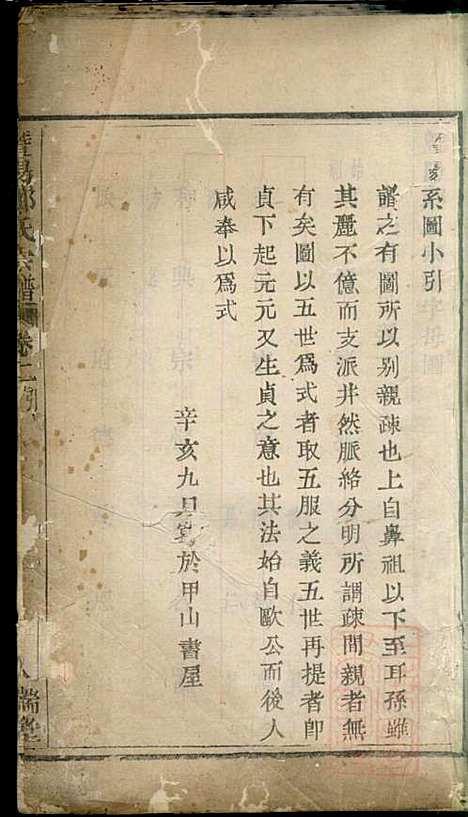 系圖小引
譜之有圖所以别親疎也上自鼻祖以下至耳孫雖
其麗不億而支派井然脈絡分明所謂疎間親者無
有矣圖以五世為式者取五服之義五世再提者即
貞下起元元又生貞之意也其法始自歐公而後人
咸奉以為式
辛亥九月寫於甲山書屋
暨陽 氏宗譜 卷二引